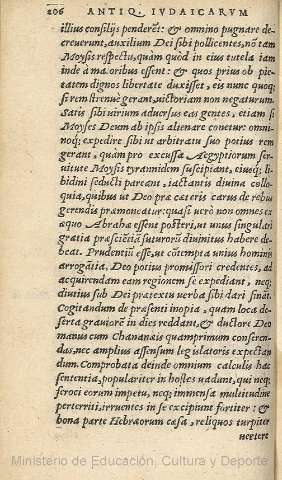 206 ANTIQ. IVDAICARVM
illius consilijs penderēt: & omnino pugnare de
creuerunt, auxilium Dei sibi pollicentes, nō tam
Moysis respectu, quàm quòd in eius tutela iam
inde à maioribus essent: & quos prius ob pie-
tatem dignos libertate duxisset, eis nunc quoq;
si rem strenuè gerant, uictoriam non negaturum.
Satis sibi uirium aduersus eas gentes, etiam si
Moyses Deum ab ipsis alienare conetur: omni-
noq; expedire sibi ut arbitratu suo potius rem
gerant, quàm pro excussa Aegyptiorum ser-
uitute Moysis tyrannidem suscipiant, eiusq; li-
bidini seducti pareant, iactantis diuina collo-
quia, quibus ut Deo præ cæteris carus de rebus
gerendis præmoneatur: quasi uerò non omnes ex
æquo Abrahæ essent posteri, ut unus singulari
gratia præsciētiā futurorū diuinitus habere de-
beat. Prudentiū esse, ut cōtempta unius hominis
arrogātia, Deo potius promissori credentes, ad
acquirendam eam regionem se expediant, neq;
diutius sub Dei prætextu uerba sibi dari sināt.
Cogitandum de præsenti inopia, quam loca de-
serta grauiorē in dies reddant, & ductore Deo
manus cum Chananæis quamprimum conseren-
das, nec amplius assensum legulatoris expectan
dum. Comprobata deinde omnium calculis hac
sententia, populariter in hostes uadunt, qui neq;
feroci eorum impetu, neq; immensa multitudine
perterriti, irruentes in se excipiunt fortiter: &
bona parte Hebræorum cæsa, reliquos turpiter
uertere
Ministerio de Educación, Cultura y Deporte